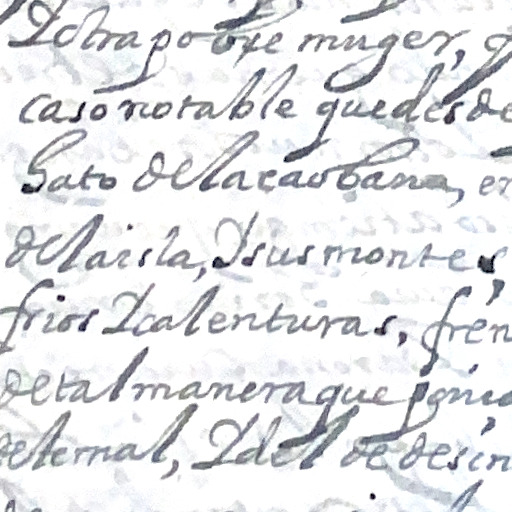 Y otra pobre muger,
caso notable que desde
hato de la caobana, en
de la isla, Y sus montes,
frios Y calenturas, fren
de tal manera que ponia
de le mal, Y del de desin